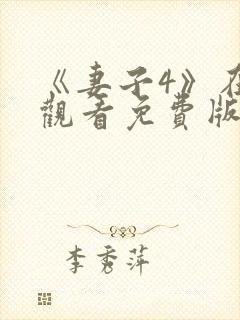 《妻子4》在
觀看免費版
李秀萍